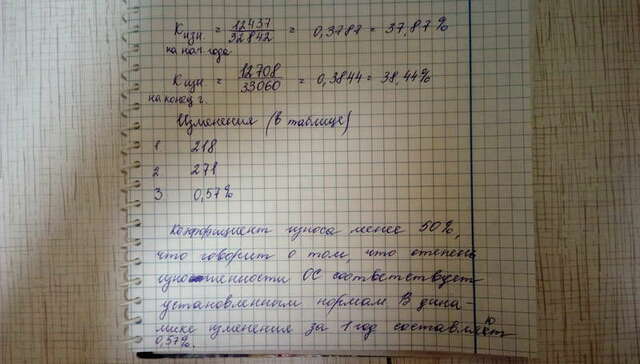 Кизн = 12437 / 32842 = 0,3787 = 37,87%
на нач. года
Кизн = 12708 / 33060 = 0,3844 = 38,44%
на конец г.
Изменения (в таблице)
1 218
2 271
3 0,57%
Коэффициент износа менее 50%,
что говорит о том, что степень
изношенности ОС соответствует
установленным нормам В дина-
мике изменения за 1 год составляют
0,57%.